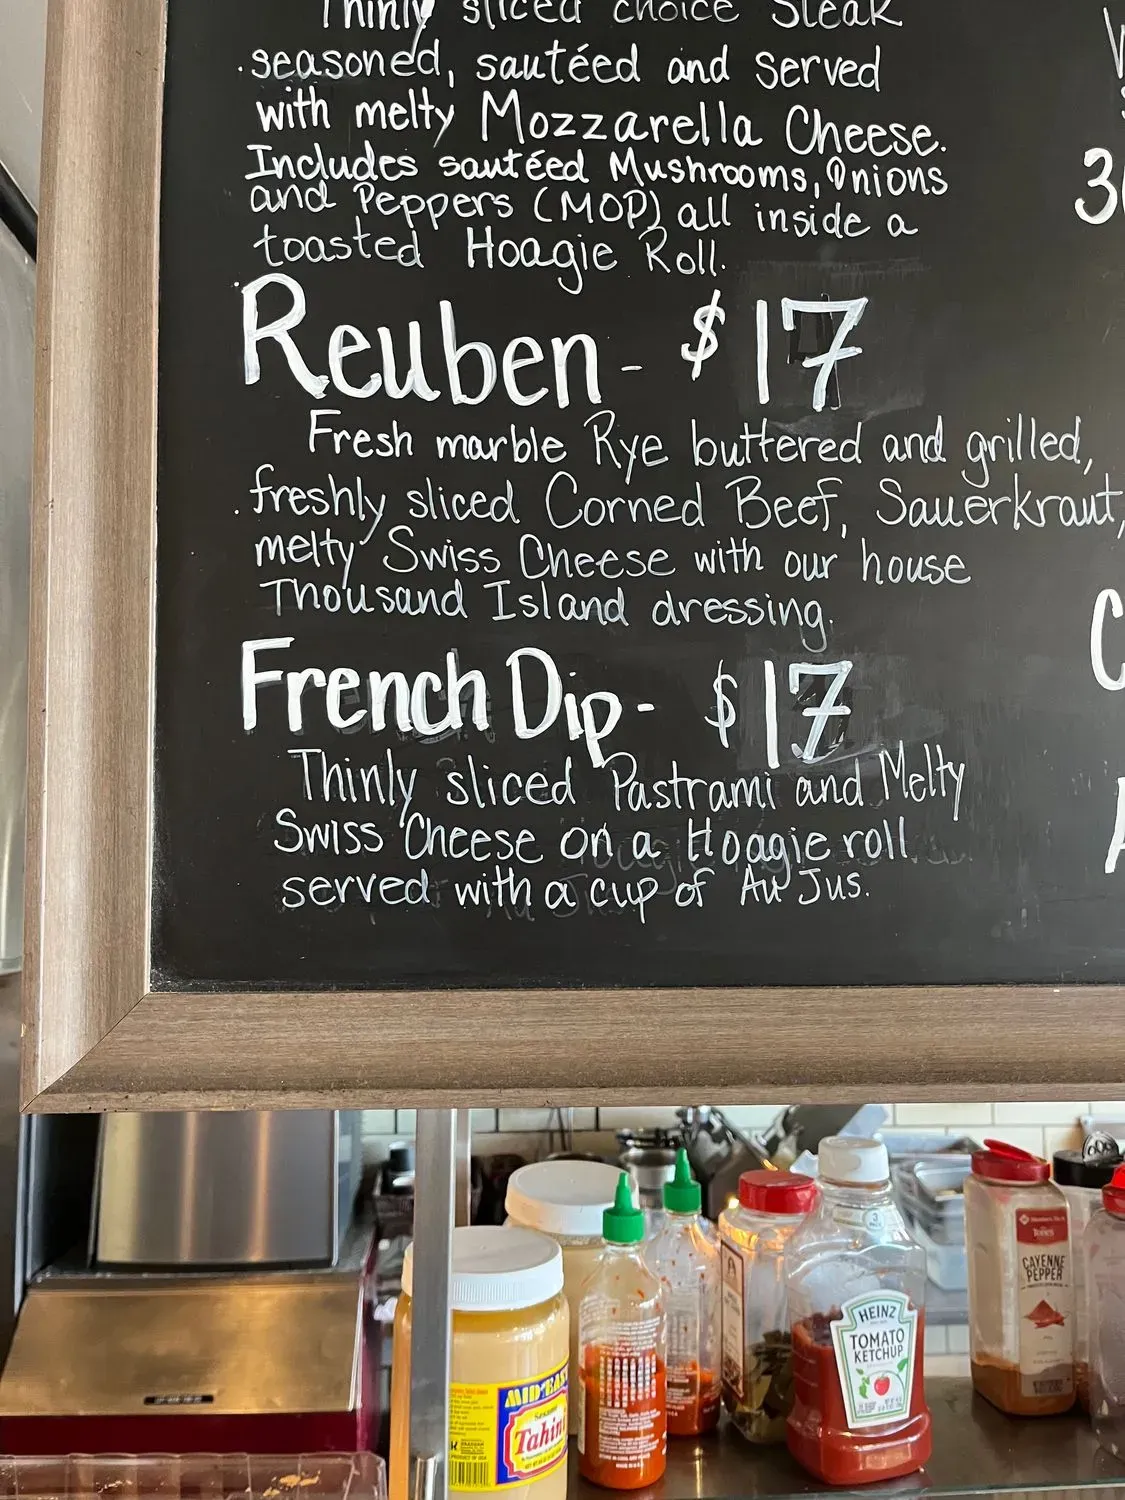 Thinly sliced choice Steak
seasoned, sautéed and served
with melty Mozzarella Cheese.
Includes sautéed Mushrooms, Onions
and Peppers (MOP) all inside a
toasted Hoagie Roll.
Reuben - $17
Fresh marble Rye buttered and grilled,
freshly sliced Corned Beef, Sauerkraut,
melty Swiss Cheese with our house
Thousand Island dressing.
French Dip - $17
Thinly sliced Pastrami and Melty
Swiss Cheese on a Hoagie roll
served with a cup of Au Jus.
MID'EAST
Sesame
Tahini
HEINZ
TOMATO
KETCHUP
Tone's
CAYENNE
PEPPER